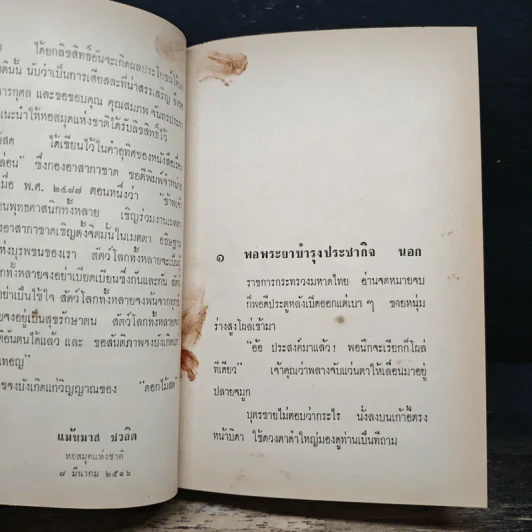 ได้ยกลิขสิทธิ์อันจะเกิดผลประโยชน์ได้
ตินั้น นับว่าเป็นการเสียสละที่น่าสรรเสริญ จึงขอ
การกุศล และขอขอบคุณ คุณสมภพ จันทรประภา
แนะนำให้หอสมุดแห่งชาติได้รับลิขสิทธิ์ไว้
สด ได้เขียนไว้ในคำอุทิศของหนังสือเรื่อง
ซึ่งกองอาสากาชาด ขอตีพิมพ์จำหน่าย
เมื่อ พ.ศ. ๒๔๘๗ ตอนหนึ่งว่า
พุทธศาสนิกทั้งหลาย เชิญร่วมงานเมตตา
อาสากาชาดเชิญตั้งจิตมั่นในเมตตา อธิษฐาน
แห่งบุรพชนของเรา สัตว์โลกทั้งหลายจง
สัตว์โลกทั้งหลายจงอย่าเบียดเบียนซึ่งกันและกัน สัตว์
อย่าเป็นไข้ใจ สัตว์โลกทั้งหลายจงพ้นจาก
จงอยู่เป็นสุขรักษาตน สัตว์โลกทั้งหลาย
ตนได้แล้ว และ ขอสันติภาพจงบังเกิด
เทอญ"
จงบังเกิดแก่วิญญาณของ "ดอกไม้สด"
แม้นมาส ชวลิต
หอสมุดแห่งชาติ
๗ มีนาคม ๒๕๑๖
๑ พอพระยาบำรุงประชากิจ นอก
ราชการกระทรวงมหาดไทย อ่านจดหมายจบ
ก็พอดีประตูหลังเปิดออกแต่เบา ๆ ชายหนุ่ม
ร่างสูงโผล่เข้ามา
"อ้อ ประสงค์มาแล้ว! พอนึกจะเรียกก็โผล่
ทีเดียว" เจ้าคุณว่าพลางจับแว่นตาให้เลื่อนมาอยู่
ปลายจมูก
บุตรชายไม่ตอบว่ากระไร นั่งลงบนเก้าอี้ตรง
หน้าบิดา ใช้ดวงตาดำใหญ่มองดูท่านเป็นทีถาม